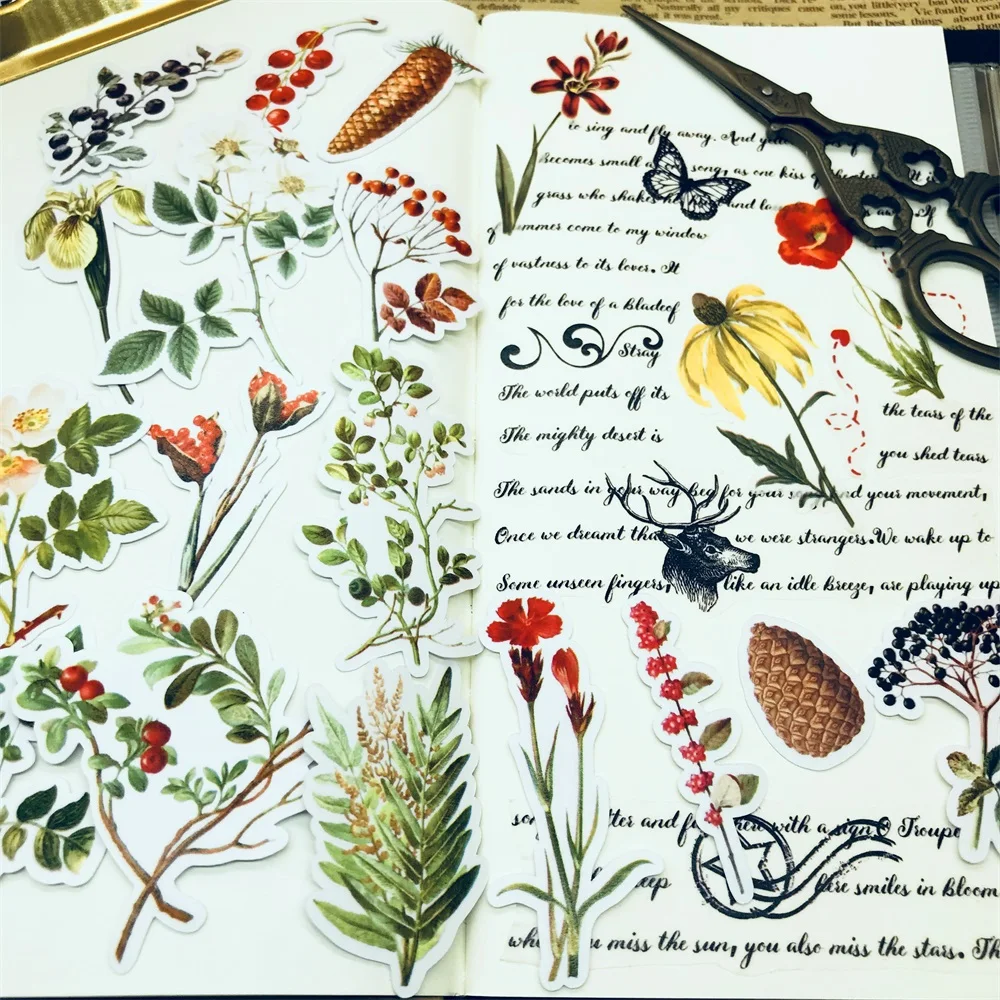 definitely
Naturally all my critiques came
it was great.
on, you little
Vic fondly
some lessons,
But the best things
to sing and fly away. And
Becomes small a song, as one kiss of
grass who shakes and
mmer come to my window
of vastness to its lover. It
for the love of a Bladeof
Stray
The world puts off its
The mighty desert is
the tears of the
you shed tears
The sands in your way Beg for your and your movement,
Once we dreamt tha we were strangers.We wake up to
Some unseen fingers, like an idle Breeze, are playing up
tter and with a sign O Troupe
eep smiles in Bloom
miss the sun, you also miss the stars. Th